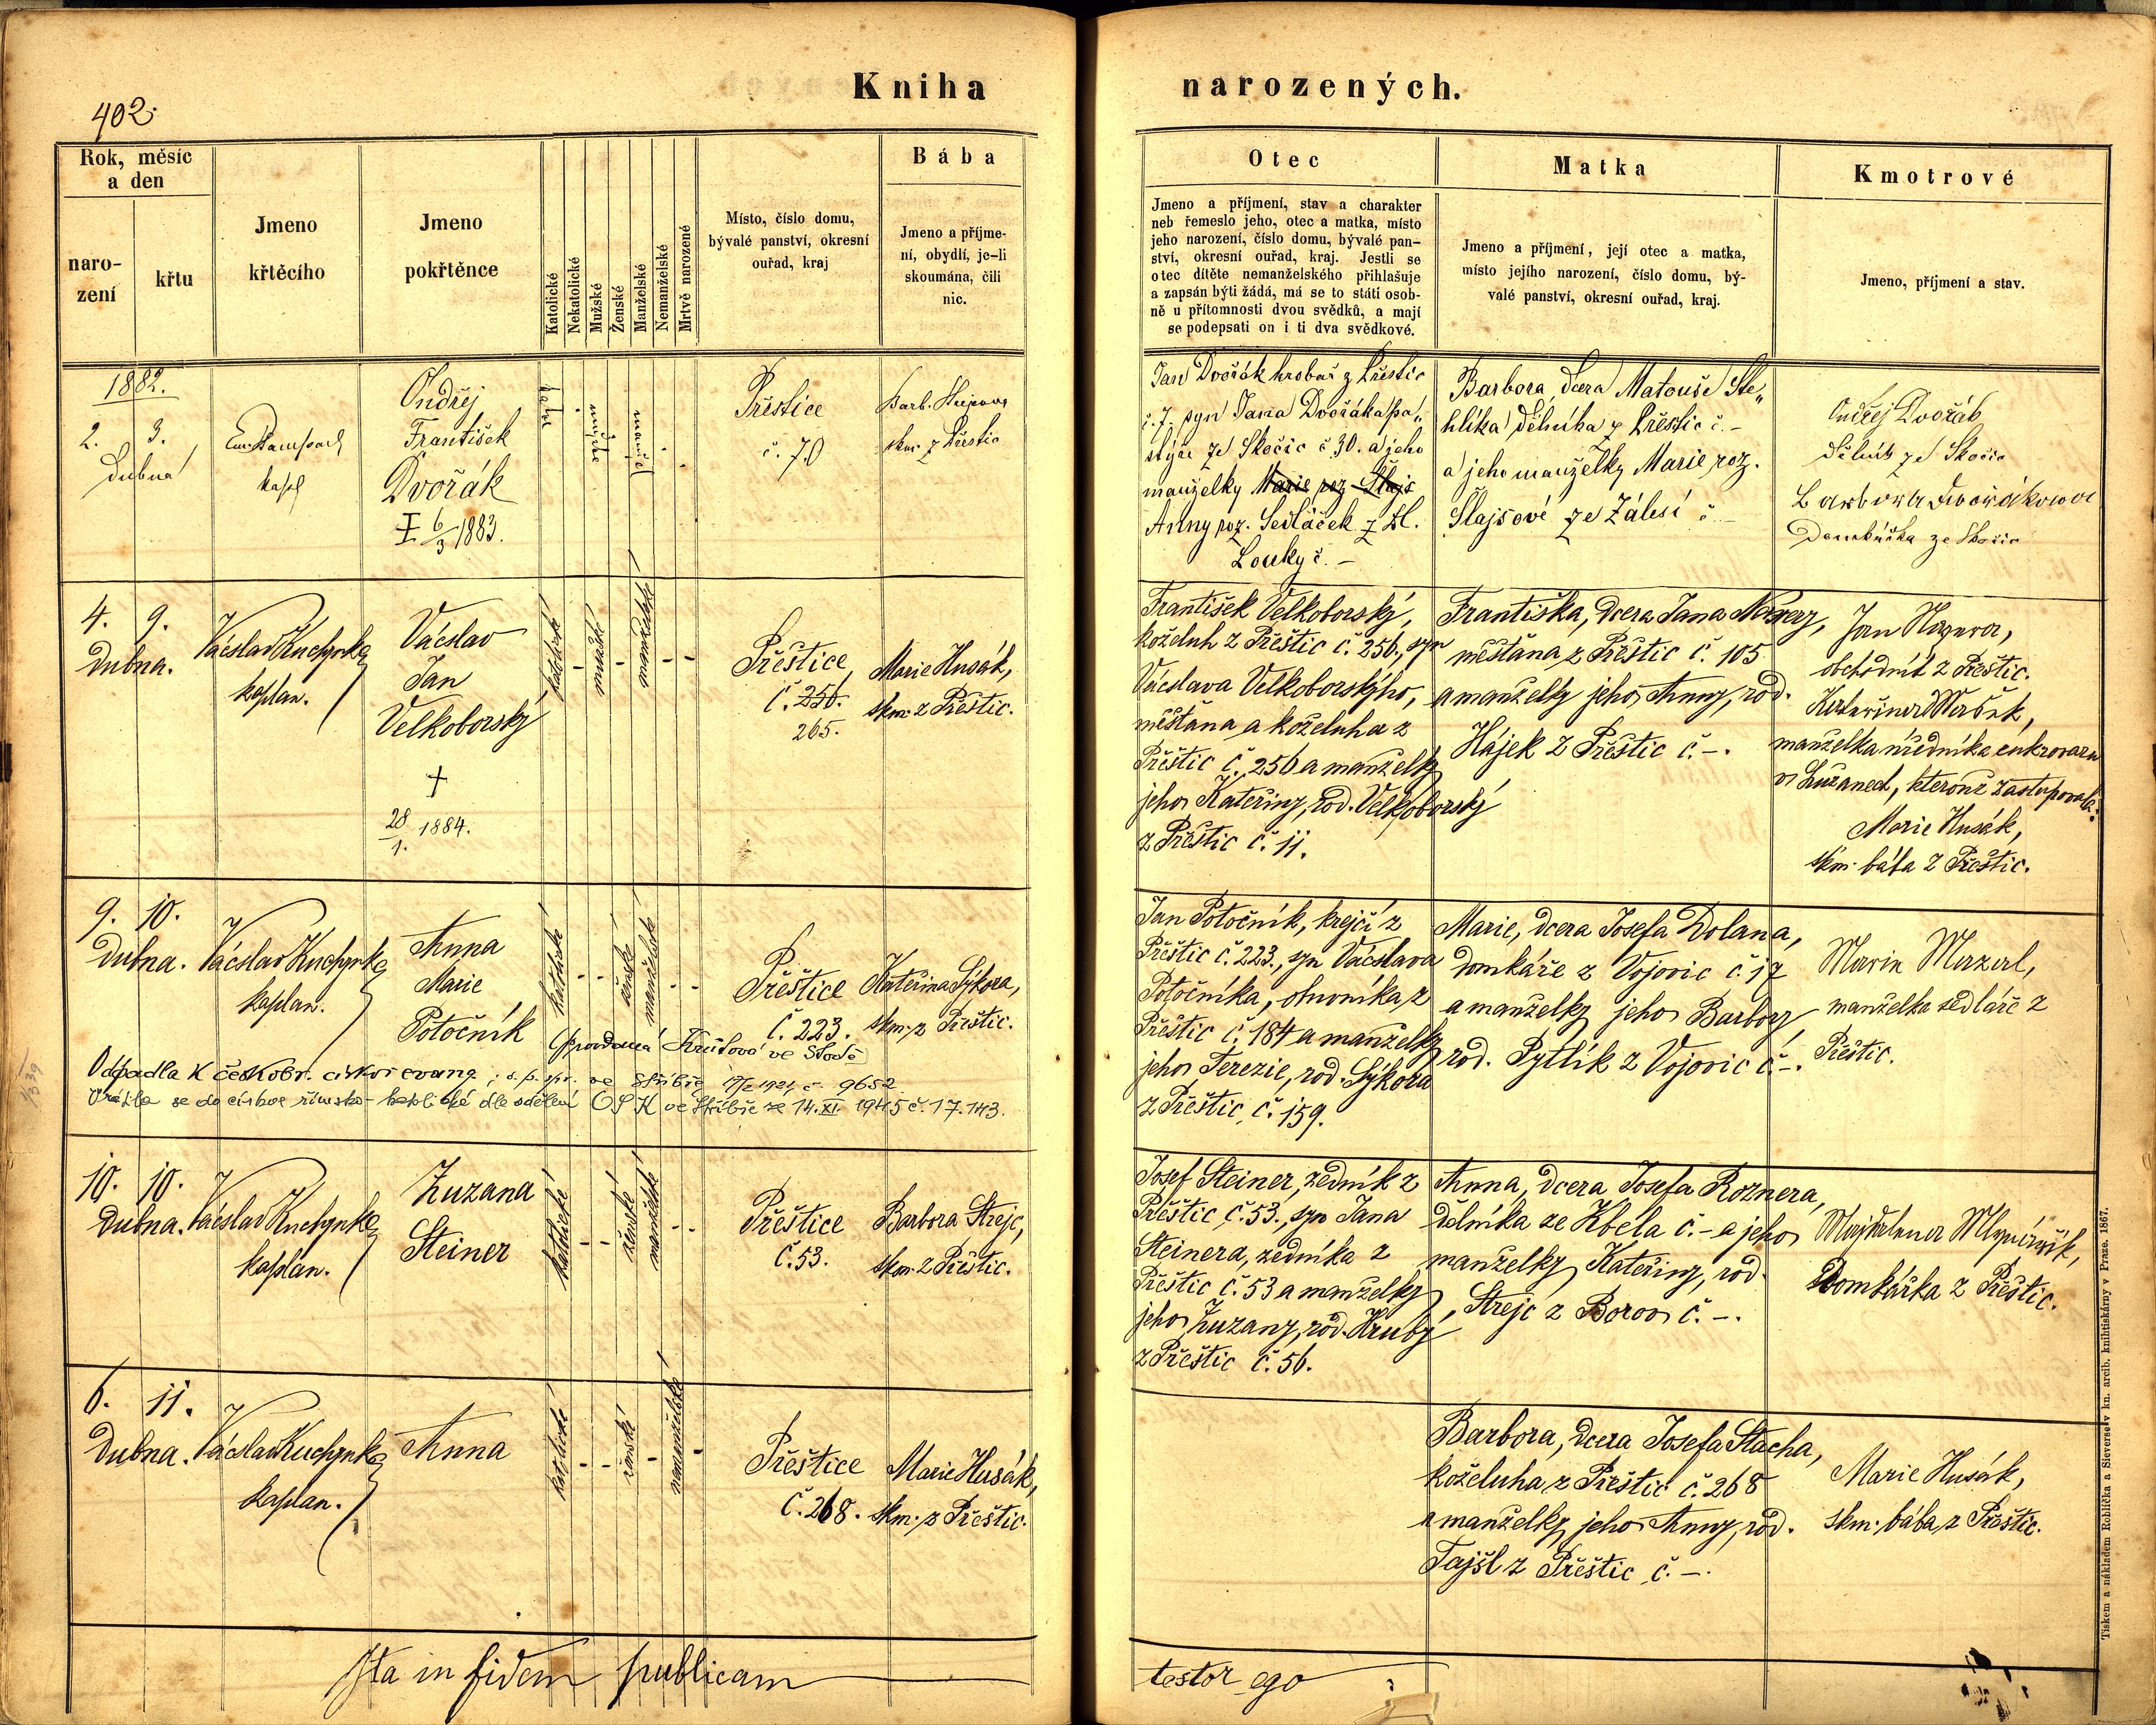 402.
Kniha
narozených.
Rok, měsíc
a den
naro-
zení
křtu
Jmeno
křtěcího
Jmeno
pokřtěnce
Katolické
Nekatolické
Mužské
Ženské
Manželské
Nemanželské
Mrtvě narozené
Místo, číslo domu,
bývalé panství, okresní
ouřad, kraj
Bába
Jmeno a příjme-
ní, obydlí, je-li
skoumána, čili
nic.
Otec
Jmeno a příjmení, stav a charakter
neb řemeslo jeho, otec a matka, místo
jeho narození, číslo domu, bývalé pan-
ství, okresní ouřad, kraj. Jestli se
otec dítěte nemanželského přihlašuje
a zapsán býti žádá, má se to státi osob-
ně u přítomnosti dvou svědků, a mají
se podepsati on i ti dva svědkové.
Matka
Jmeno a příjmení, její otec a matka,
místo jejího narození, číslo domu, bý-
valé panství, okresní ouřad, kraj.
Kmotrové
Jmeno, příjmení a stav.
1882.
2. 3.
Dubna
kapl
Ondřej
František
Dvořák
6/3 1883.
Přeštice
č. 70
Barb.
skm. z Přeštic
Jan Dvořák hrobař z Přeštic
č. 7. syn Jana Dvořáka pa„
stýře ze Skočic č 30. a jeho
manželky Marie roz Šlajs
Anny roz. Sedláček z
Louky č. –
Barbora dcera Matouše Ste„
hlíka dělníka z Přeštic č. –
a jeho manželky Marie roz.
Šlajsové ze Zálesí č –
Ondřej Dvořák
dělník ze Skočic
Barbora Dvořákova
Domkářka ze Skočic
4. 9.
Dubna.
Václav Kuchynka
kaplan.
Václav
Jan
Velkoborský
+
28/1. 1884.
katolické
-
mužské
-
manželské
- -
Přeštice,
č. 256.
265.
Marie Husák,
skm. z Přeštic.
František Velkoborský,
koželuh z Přeštic č. 256., syn
Václava Velkoborskýho,
měšťana a koželuha z
Přeštic č. 256 a manželky
jeho Kateřiny, rod. Velkoborský
z Přeštic č. 11.
Františka, dcera Jana
měšťana z Přeštic č. 105
a manželky jeho Anny, rod.
Hájek z Přeštic č –.
Jan
obchodník z Přeštic.
Kateřina
manželka úředníka cukrovaru
v Lužanech, kterouž zastupovala:
Marie Husák,
skm. bába z Přeštic.
9. 10.
Dubna.
Václav Kuchynka
kaplan.
Anna
Marie
Potočník
katolické
- -
ženské
manželské
- -
Přeštice
č. 223.
Kateřina Sýkora,
skm. z Přeštic.
provdaná ve Stodě
Odpadla k českobr. církvi evang. ; s. p. spr. ve Stříbře 1921 č 9652
Vrátila se do církve římsko-katolické dle sdělení OSK ve Stříbře ze 14. XI. 1945 č. 17.143.
Jan Potočník, krejčí z
Přeštic č. 223., syn Václava
Potočníka, obuvníka, z
Přeštic č. 184 a manželky
jeho Terezie, rod. Sýkora
z Přeštic č. 159.
Marie, dcera Josefa Dolana,
domkáře z Vojovic č. 17
a manželky jeho Barbory
rod. Pytlík z Vojovic č. –.
Marie
manželka sedláře z
Přeštic.
10. 10.
Dubna.
Václav Kuchynka
kaplan.
Zuzana
Steiner
katolické
- -
ženské
manželské
- -
Přeštice
č. 53.
Barbora Strejc,
skm. z Přeštic.
Josef Steiner, zedník z
Přeštic č. 53., syn Jana
Steinera, zedníka z
Přeštic č. 53 a manželky
jeho Zuzany, rod. Hrubý
z Přeštic č. 56.
Anna, dcera Josefa Roznera,
dělníka ze Kbela č. – a jeho
manželky Kateřiny, rod.
Strejc z Borov č. –.
Majdalena
Domkářka z Přeštic.
6. 11.
Dubna.
Václav Kuchynka
kaplan.
Anna
katolické
- -
ženské
-
nemanželské
-
Přeštice
č. 268.
Marie Husák,
skm. z Přeštic.
Barbora, dcera Josefa Stacha,
koželuha z Přeštic č. 268
a manželky jeho Anny, rod.
Tajšl z Přeštic č. –.
Marie Husák,
skm. bába z Přeštic.
Ita in fidem publicam
testor ego
Tiskem a nákladem Rohlíčka a Sieversův kn. arcib. knihtiskárny v Praze. 1867.